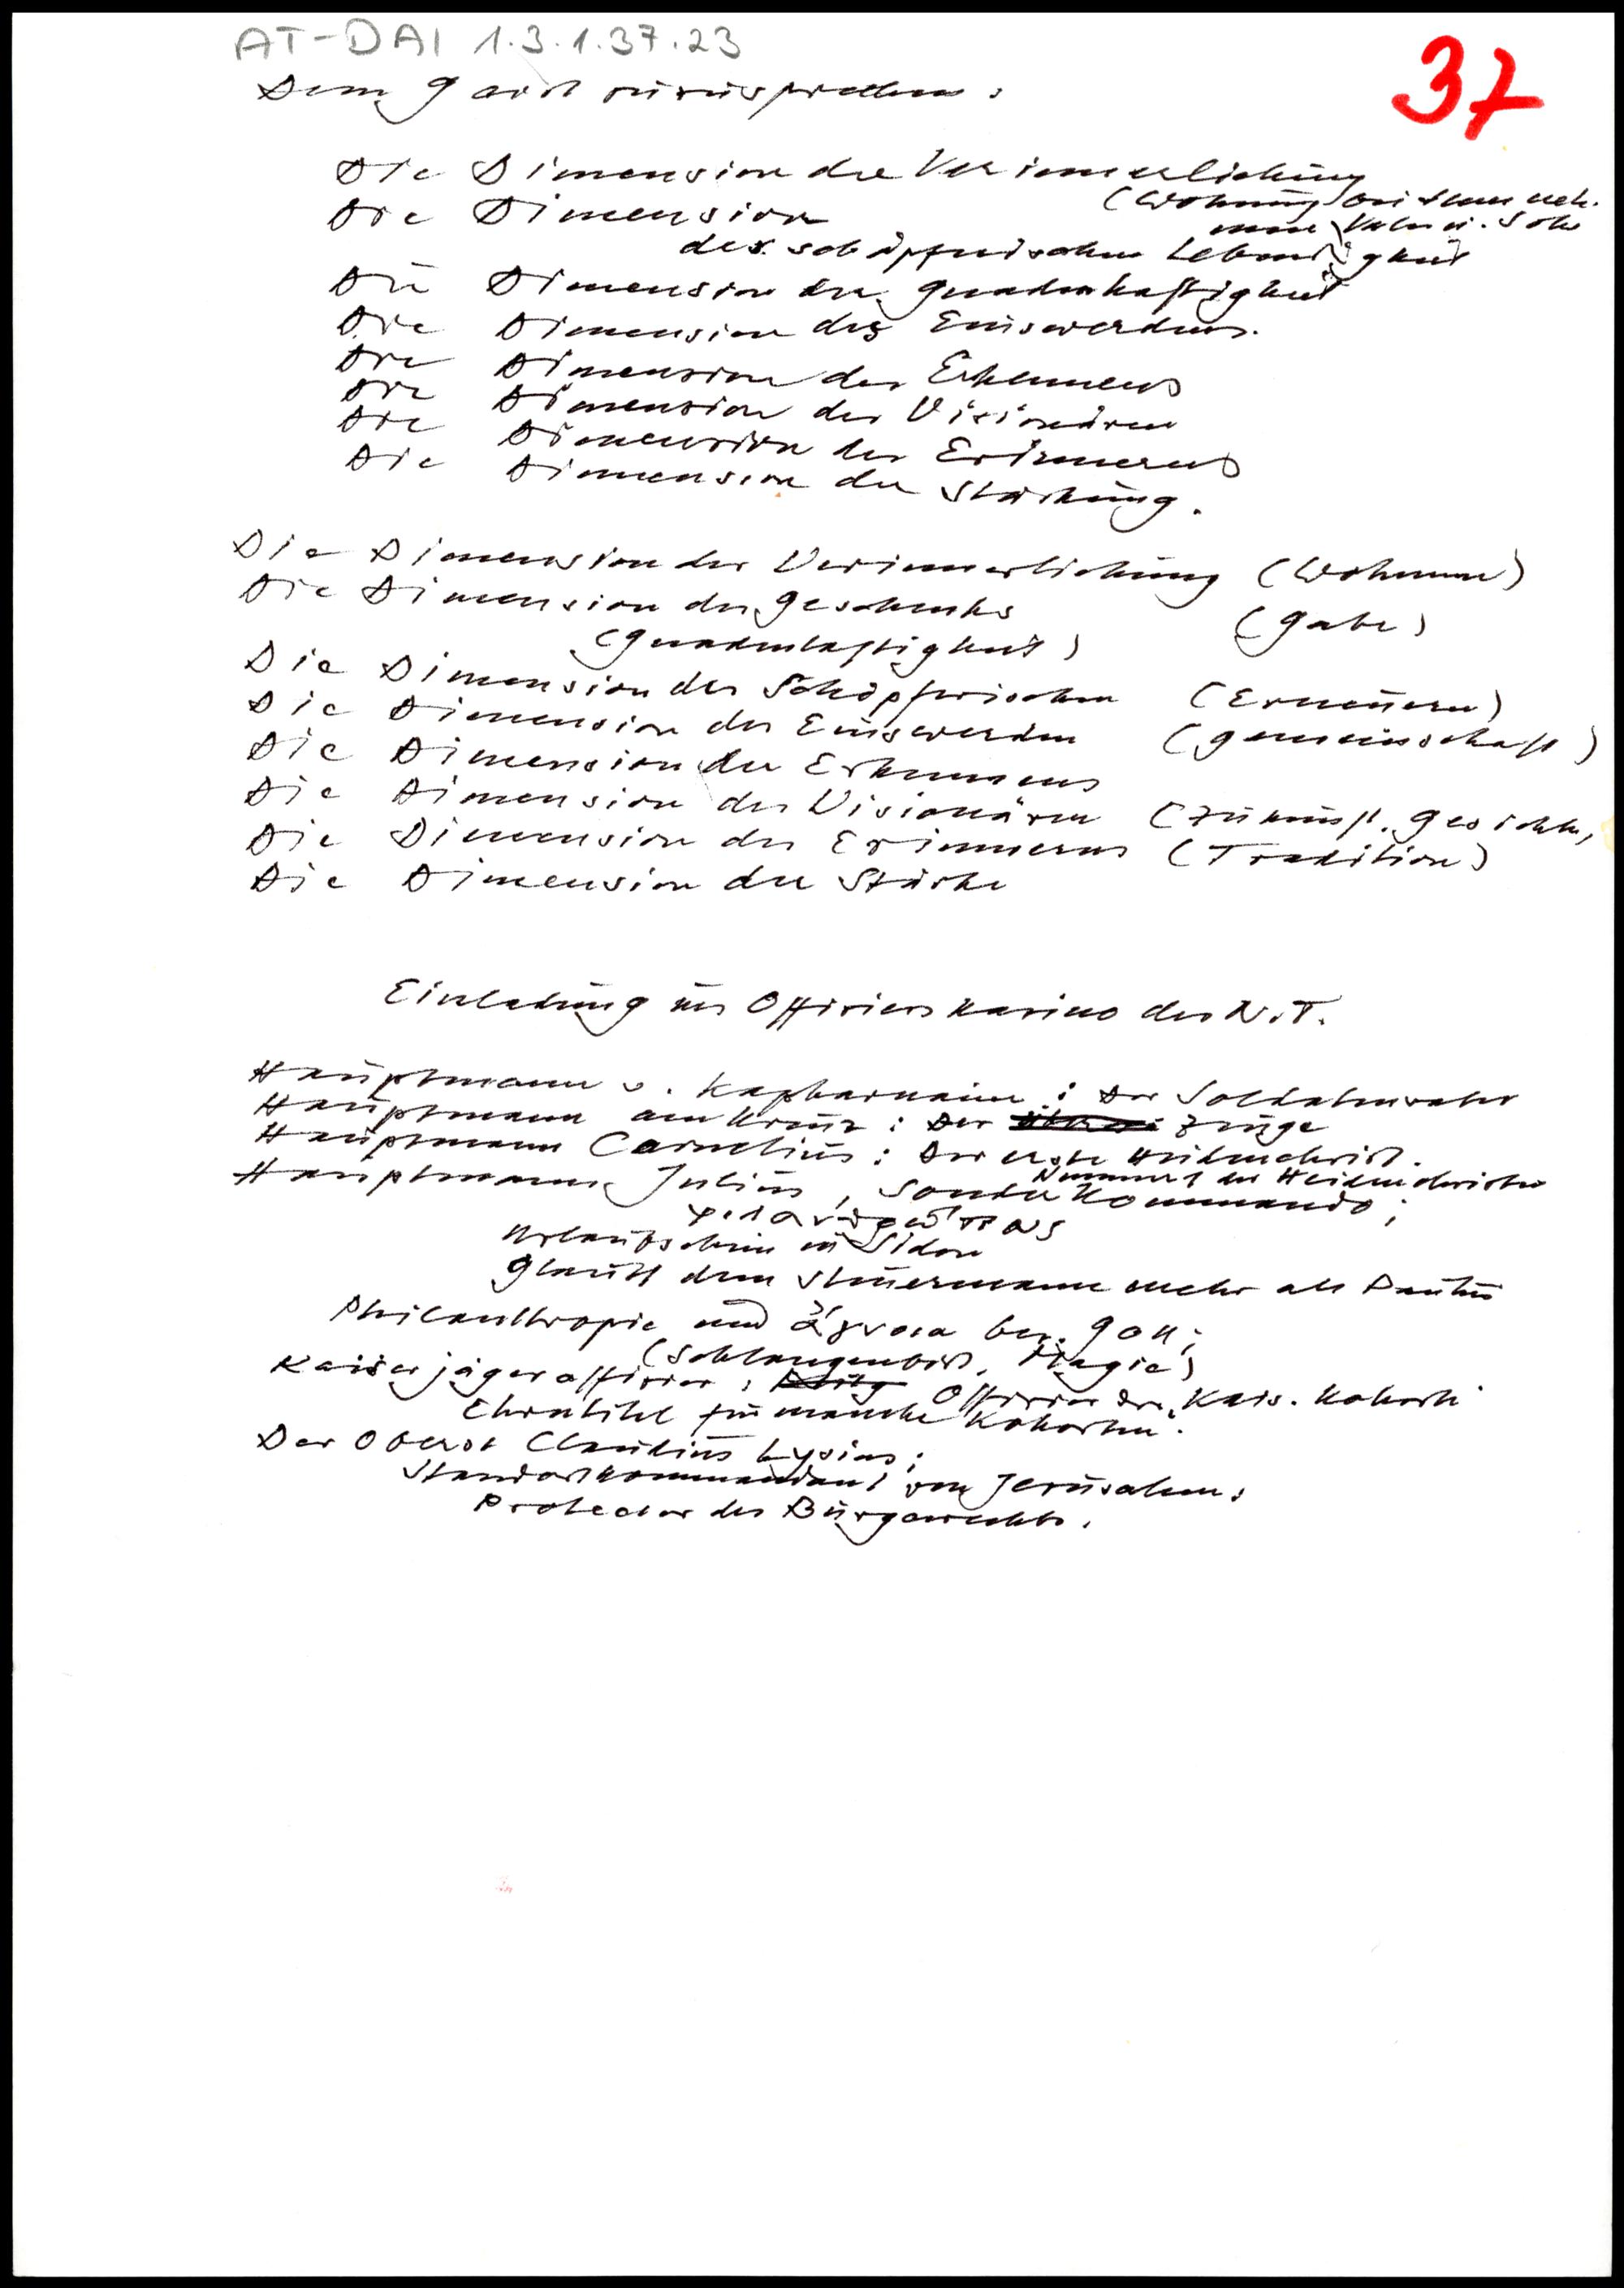 AT-DAI 1.3.1.37.23
37
Dem Geist zuzusprechen:
Die Dimension der Verinnerlichung
(Wohnung bei
Die Dimension Vater u. Sohn
des schöpferischen Lebendigkeit
Die Dimension der Gnadenhaftigkeit
Die Dimension des Einswerdens.
Die Dimension des Erkennens
Die Dimension des Visionären
Die Dimension des Erinnerns
Die Dimension der Stärkung.
Die Dimension der Verinnerlichung (Wohnen)
Die Dimension des Geschenks
(Gabe)
(Gnadenhaftigkeit)
Die Dimension des Schöpferischen (Erneuern)
Die Dimension des Einswerden (Gemeinschaft)
Die Dimension des Erkennens
Die Dimension des Visionären (Zukunft, Gesichte,
Die Dimension des Erinnerns (Tradition)
Die Dimension der Stärke
Einladung ins Offizierskasino des N.T.
Hauptmann v. Kapharnaum: Der Soldatenvater
Hauptmann am Kreuz: Der Zeuge
Hauptmann Cornelius: Der erste Heidenchrist.
Nummer 1 der Heidenchristen
Hauptmann Julius, Sonderkommando;
φιλανθρώπως
Urlaubschein in Sidon
Glaubt dem Steuermann mehr als Paulus
Philanthropie und ἄγνοια bez. Gott;
(Schlangenbiss, Magie)
Kaiserjägeroffizier: Offizier der Kais. Kohorte
Ehrentitel für manche Kohorten.
Der Oberst Claudius Lysias;
Standortkommandant von Jerusalem;
Protector des Bürgerrechts.